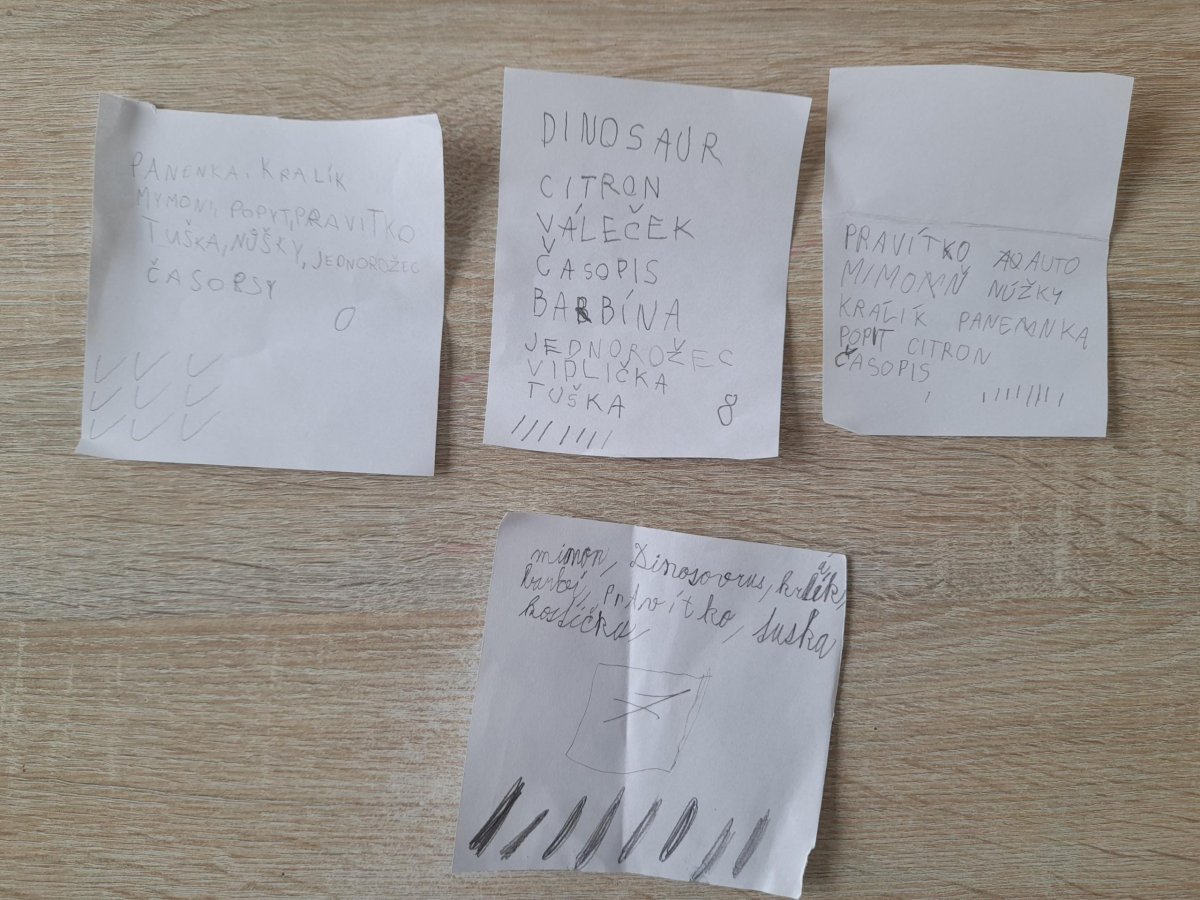 PANENKA, KRALÍK
MYMONI, POPYT, PRAVITKO
TUŠKA, NŮŠKY, JEDNOROŽEC
ČASOPSY
0
DINOSAUR
CITRON
VÁLEČEK
ČASOPIS
BARBÍNA
JEDNOROŽEC
VIDLIČKA
TUŠKA
8
PRAVÍTKO AUTO
MIMONŇ NŮŽKY
KRÁLÍK PANENNKA
POPIT CITRON
ČASOPIS
mimon, Dinosovrus, králík,
PrAvítko, tuska
kostíčka